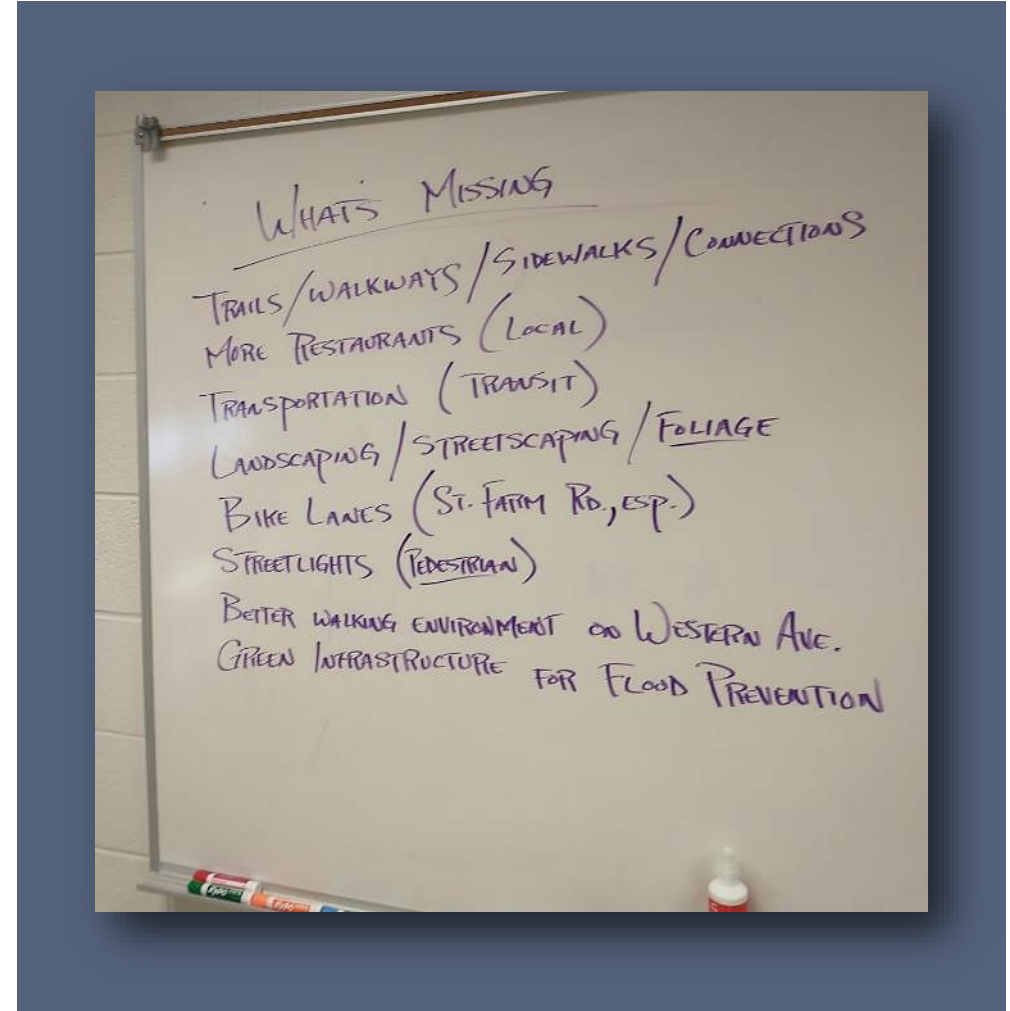 WHAT'S MISSING
TRAILS/WALKWAYS/SIDEWALKS/CONNECTIONS
MORE RESTAURANTS (LOCAL)
TRANSPORTATION (TRANSIT)
LANDSCAPING/STREETSCAPING/FOLIAGE
BIKE LANES (ST. FARM RD., ESP.)
STREETLIGHTS (PEDESTRIAN)
BETTER WALKING ENVIRONMENT ON WESTERN AVE.
GREEN INFRASTRUCTURE FOR FLOOD PREVENTION
EXPO